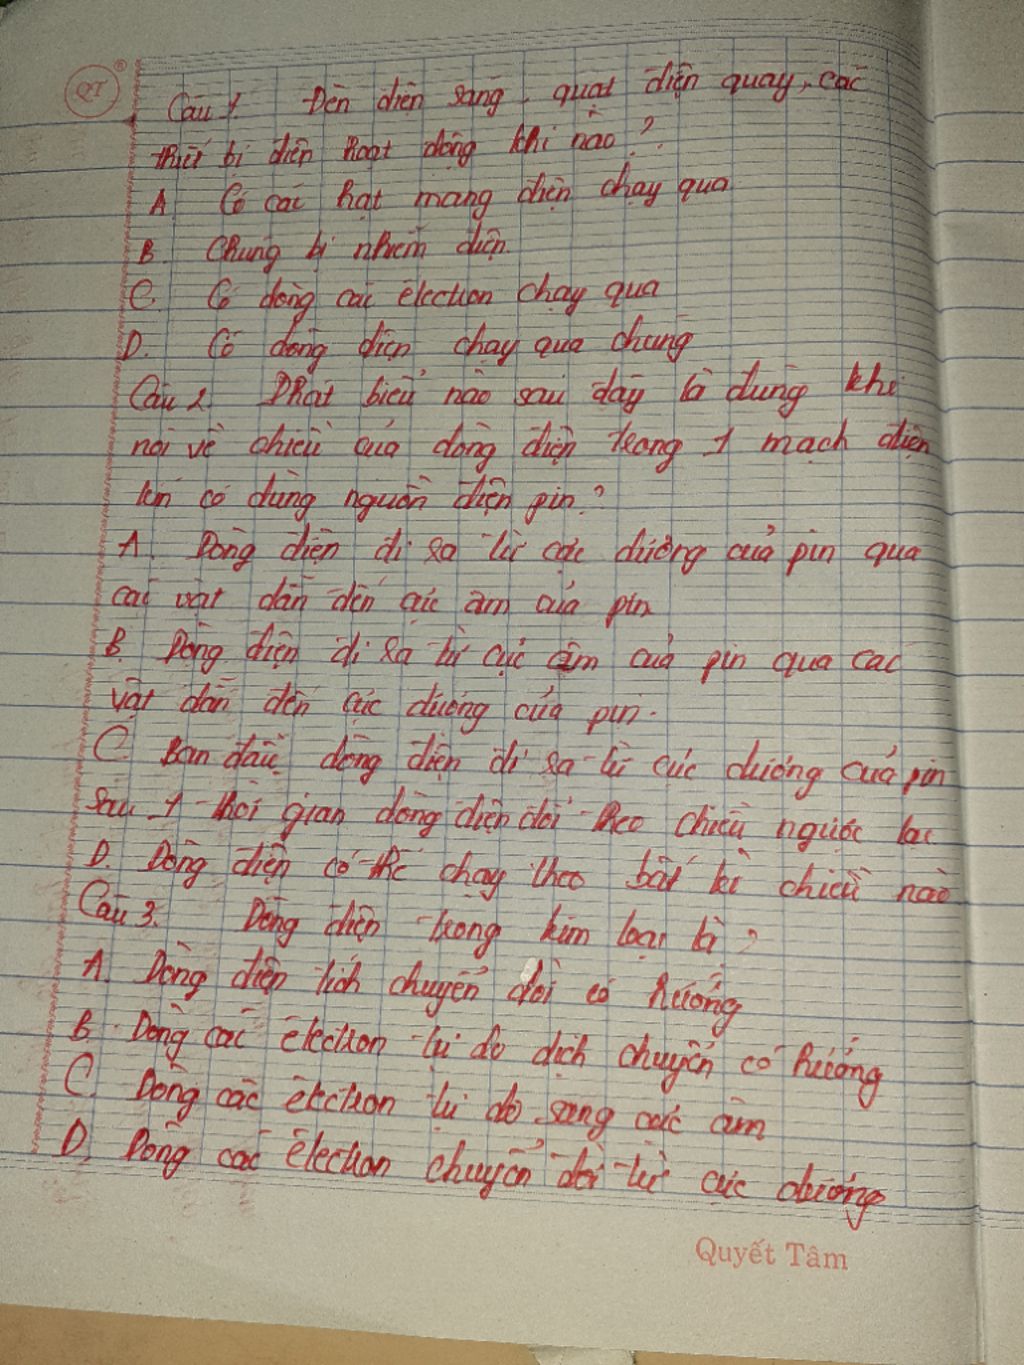 QT
Câu 1. Đèn điện sáng, quạt điện quay, các
thiết bị điện hoạt động khi nào?
A. Có các hạt mang điện chạy qua
B. Chúng bị nhiễm điện.
C. Có dòng các êlectron chạy qua
D. Có dòng điện chạy qua chúng
Câu 2. Phát biểu nào sau đây là đúng khi
nói về chiều của dòng điện trong 1 mạch điện
kín có dùng nguồn điện pin?
A. Dòng điện đi ra từ cực dương của pin qua
các vật dẫn đến cực âm của pin
B. Dòng điện đi ra từ cực âm của pin qua các
vật dẫn đến cực dương của pin.
C. Ban đầu, dòng điện đi ra từ cực dương của pin
sau 1 thời gian dòng điện đổi theo chiều ngược lại
D. Dòng điện có thể chạy theo bất kì chiều nào
Câu 3. Dòng điện trong kim loại là?
A. Dòng điện tích chuyển dời có hướng
B. Dòng các êlectron tự do dịch chuyển có hướng
C. Dòng các êlectron tự do sang cực âm
D. Dòng các êlectron chuyển dời từ cực dương
Quyết Tâm